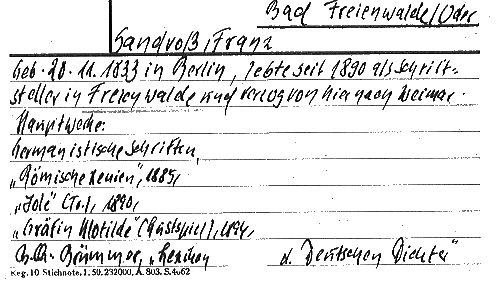 Bad Freienwalde/Oder
Sandroß, Franz
Geb. 20. 11. 1833 in Berlin, lebte seit 1890 als Schrift-
steller in Freienwalde und verzog von hier nach Weimar.
Hauptwerke:
Germanistische Schriften,
„Römische Xenien“, 1885,
„Jole“ (Tr.), 1890,
„Gräfin Klotilde“ (Lustspiel), 1894,
Brümmer, „Lexikon d. Deutschen Dichter“
Reg. 10 Stichnote. 1. 50. 232000, A. 803. S. 4062